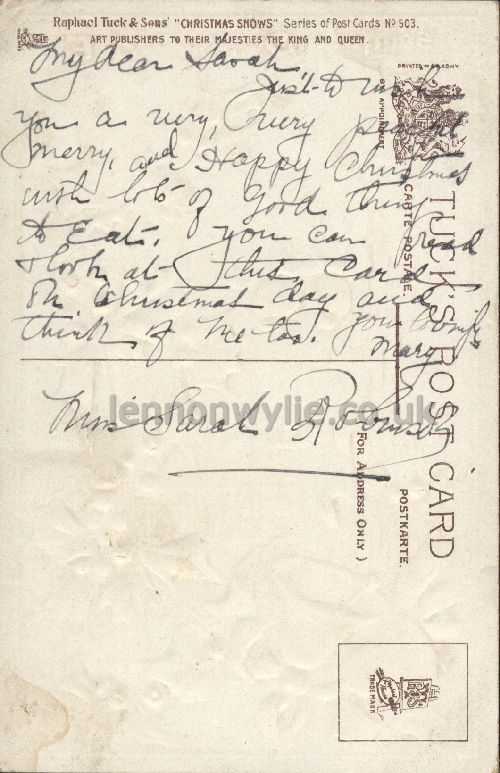 Raphael Tuck & Sons' "CHRISTMAS SNOWS" Series of Post Cards No 503.
ART PUBLISHERS TO THEIR MAJESTIES THE KING AND QUEEN.
PRINTED IN SAXONY
BY APPOINTMENT
My dear Sarah
Just to wish
you a very, very
merry, and Happy Christmas
with lots of Good things
to Eat. If you can read
& look at this Card
on Christmas day and
think of me too. your lovingly
Mary
Miss Sarah Robinson
TUCK'S POST CARD
CARTE POSTALE
POSTKARTE.
(FOR ADDRESS ONLY)
TRADE MARK
lennonwylie.co.uk